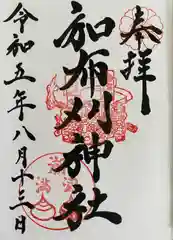 奉拝
加布刈神社
令和五年八月十三日